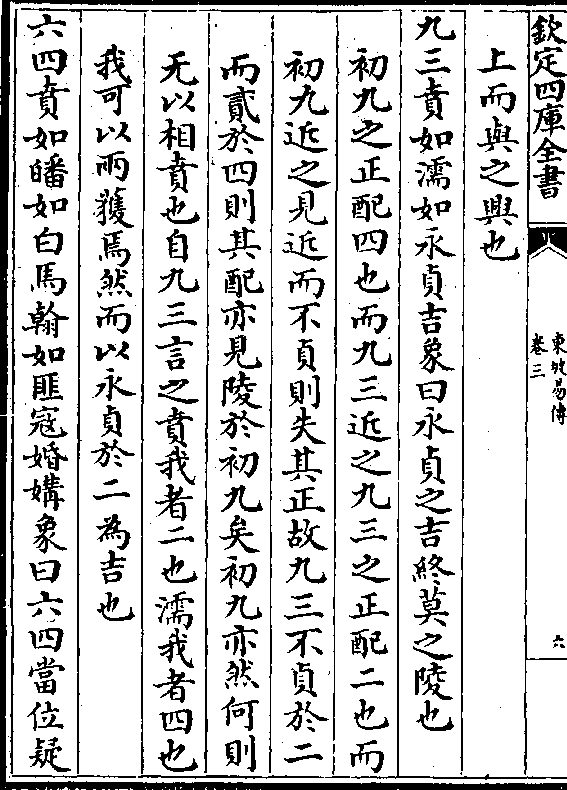 欽定四庫全書
東坡易傳
卷三
六
上而與之興也
九三賁如濡如永貞吉象曰永貞之吉終莫之陵也
初九之正配四也而九三近之九三之正配二也而
初九近之見近而不貞則失其正故九三不貞於二
而貳於四則其配亦見陵於初九矣初九亦然何則
无以相賁也自九三言之賁我者二也濡我者四也
我可以兩獲焉然而以永貞於二為吉也
六四賁如皤如白馬翰如匪寇婚媾象曰六四當位疑